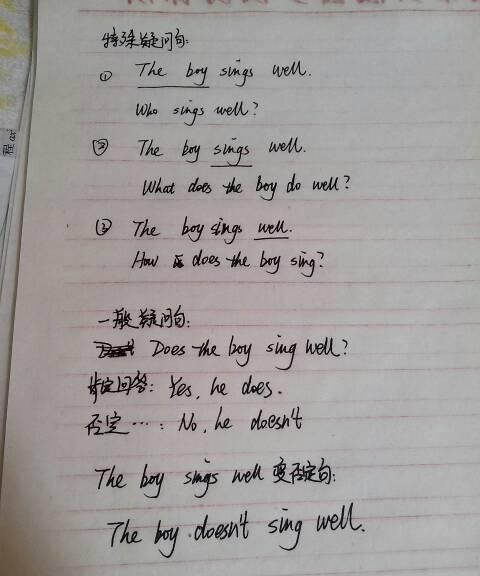 特殊疑问句:
① The boy sings well.
Who sings well?
② The boy sings well.
What does the boy do well?
③ The boy sings well.
How does the boy sing?
一般疑问句:
Does the boy sing well?
肯定回答: Yes, he does.
否定…: No, he doesn't
The boy sings well 变否定句:
The boy doesn't sing well.
程